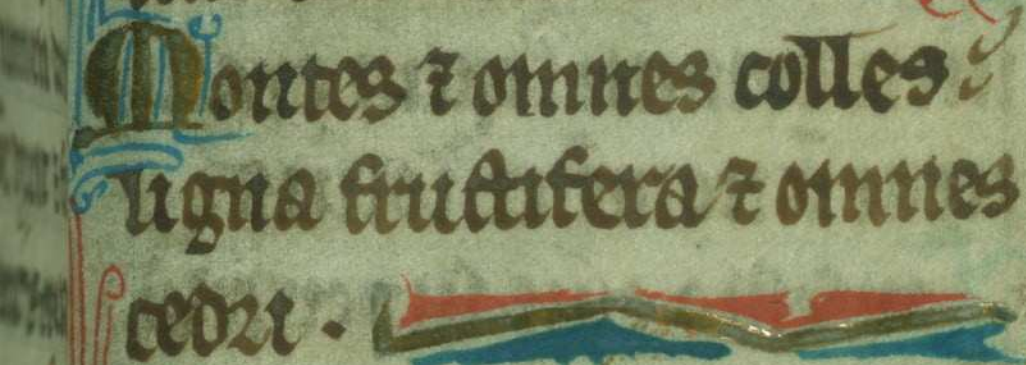 Montes ⁊ omnes colles
ligna fructifera ⁊ omnes
cedri.